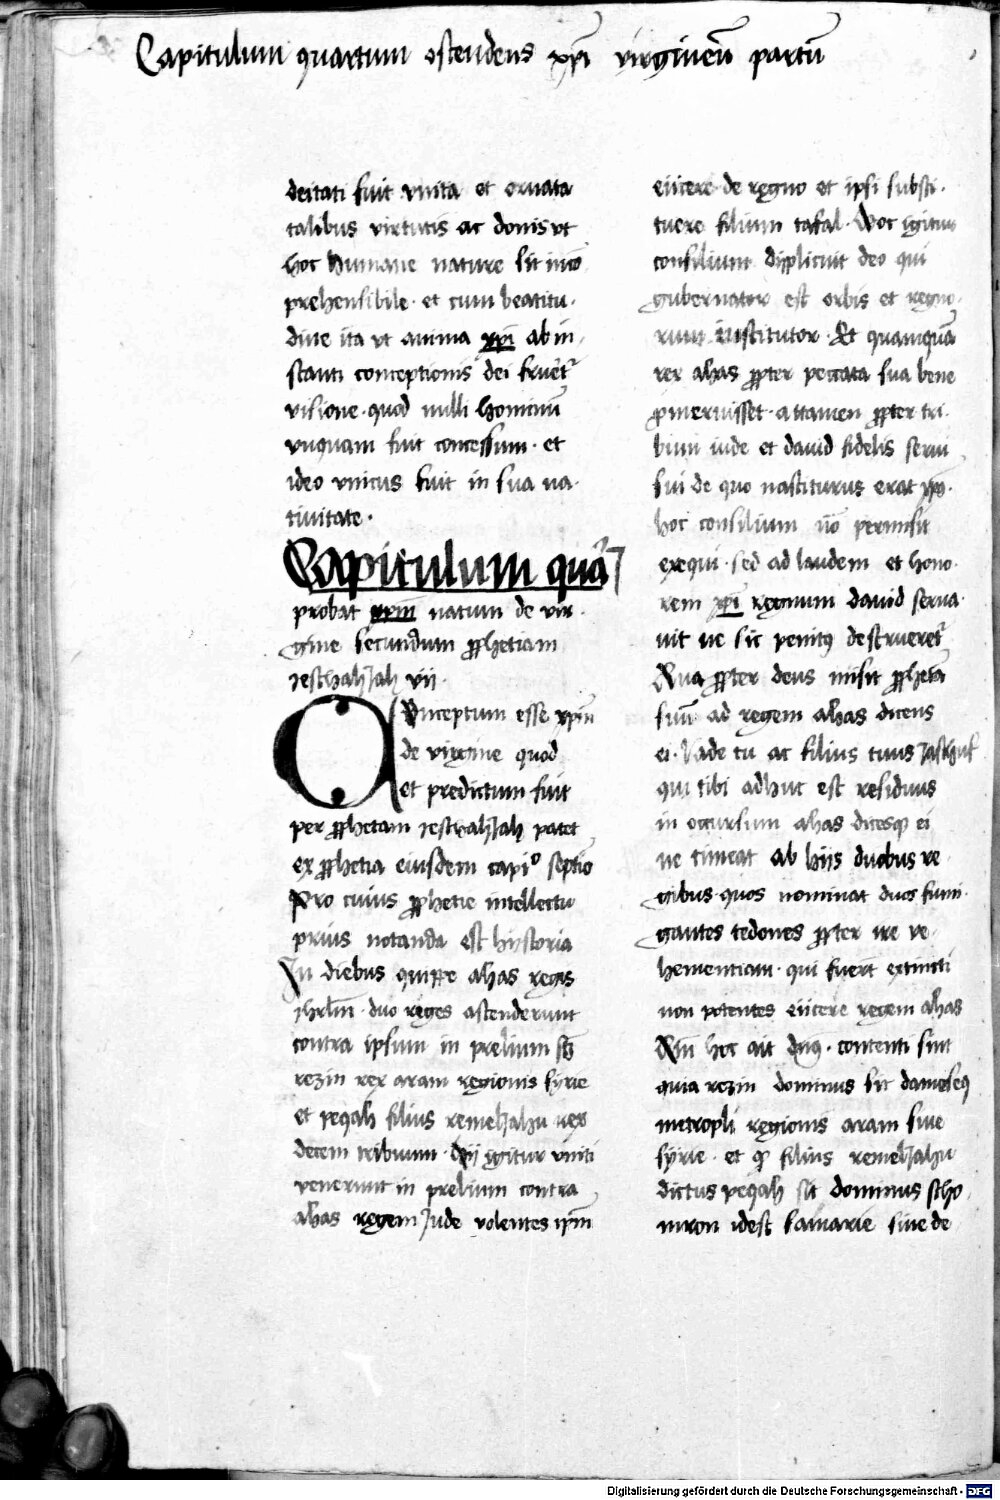 Capitulum quartum ostendens xpi virgineū partū
deitati fuit vnita et ornata
talibus virtutis ac donis vt
hoc humane nature sit incō
prehensibile · et cum beatitu·
dine ita vt anima xpi ab in·
stanti conceptionis dei fruet᷑
visione · quod nulli hominū
vnquam fuit concessum · et
ideo vnicus fuit in sua na·
tiuitate ·
Capitulum quā
probat xpm̄ natum de vir·
gine secundum ꝓphetiam
jeschahJah vij ·
Conceptum esse xpm̄
de virgine quod
et predictum fuit
per ꝓphetam jeschahJah patet
ex ꝓphetia eiusdem capi° septīo
Pro cuius ꝓphetie intellectu
prius notanda est hystoria
In diebus quippe ahas regis
jhrlm̄ · duo reges ascenderunt
contra ipsum in prelium sꝫ
rezin rex aram regionis syrie
et peqah filius remelJahu rex
decem tribuum · hij igitur vniti
venerunt in prelium contra
ahas regem Jude volentes ipm̄
eijcere de regno et ipsi substi·
tuere filium tafal · Hoc igitur
consilium displicuit deo qui
gubernator est orbis et regno·
rum institutor · Et quamquā
rex ahas ꝓpter peccata sua bene
ꝓmeruisset · attamen ꝓpter tri·
bum iude et dauid fidelis serui
sui de quo nasciturus erat xps·
hoc consilium nō permisit
exequi · sed ad laudem et hono·
rem xpi regnum dauid serua·
uit ne sic penitꝰ destrueret᷑
Qua ꝓpter deus misit ꝓphetā
suū ad regem ahas dicens
ei · Vade tu ac filius tuus
qui tibi adhuc est residuus
in occursum ahas dicesqꝫ ei
ne timeat ab hijs duobus re
gibus quos nominat duos fumi·
gantes tedones ꝓpter ire ve·
hementiam · qui fuerūt extincti
non potentes eijcere regem ahas
hoc ait dn̄s · contenti sint
quia rezin dominus sit dameseq
metropoli regionis aram siue
syrie · et qꝫ filius remelJahu
dictus peqah sit dominus scho·
mron idest samarie siue de
Digitalisierung gefördert durch die Deutsche Forschungsgemeinschaft - DFG